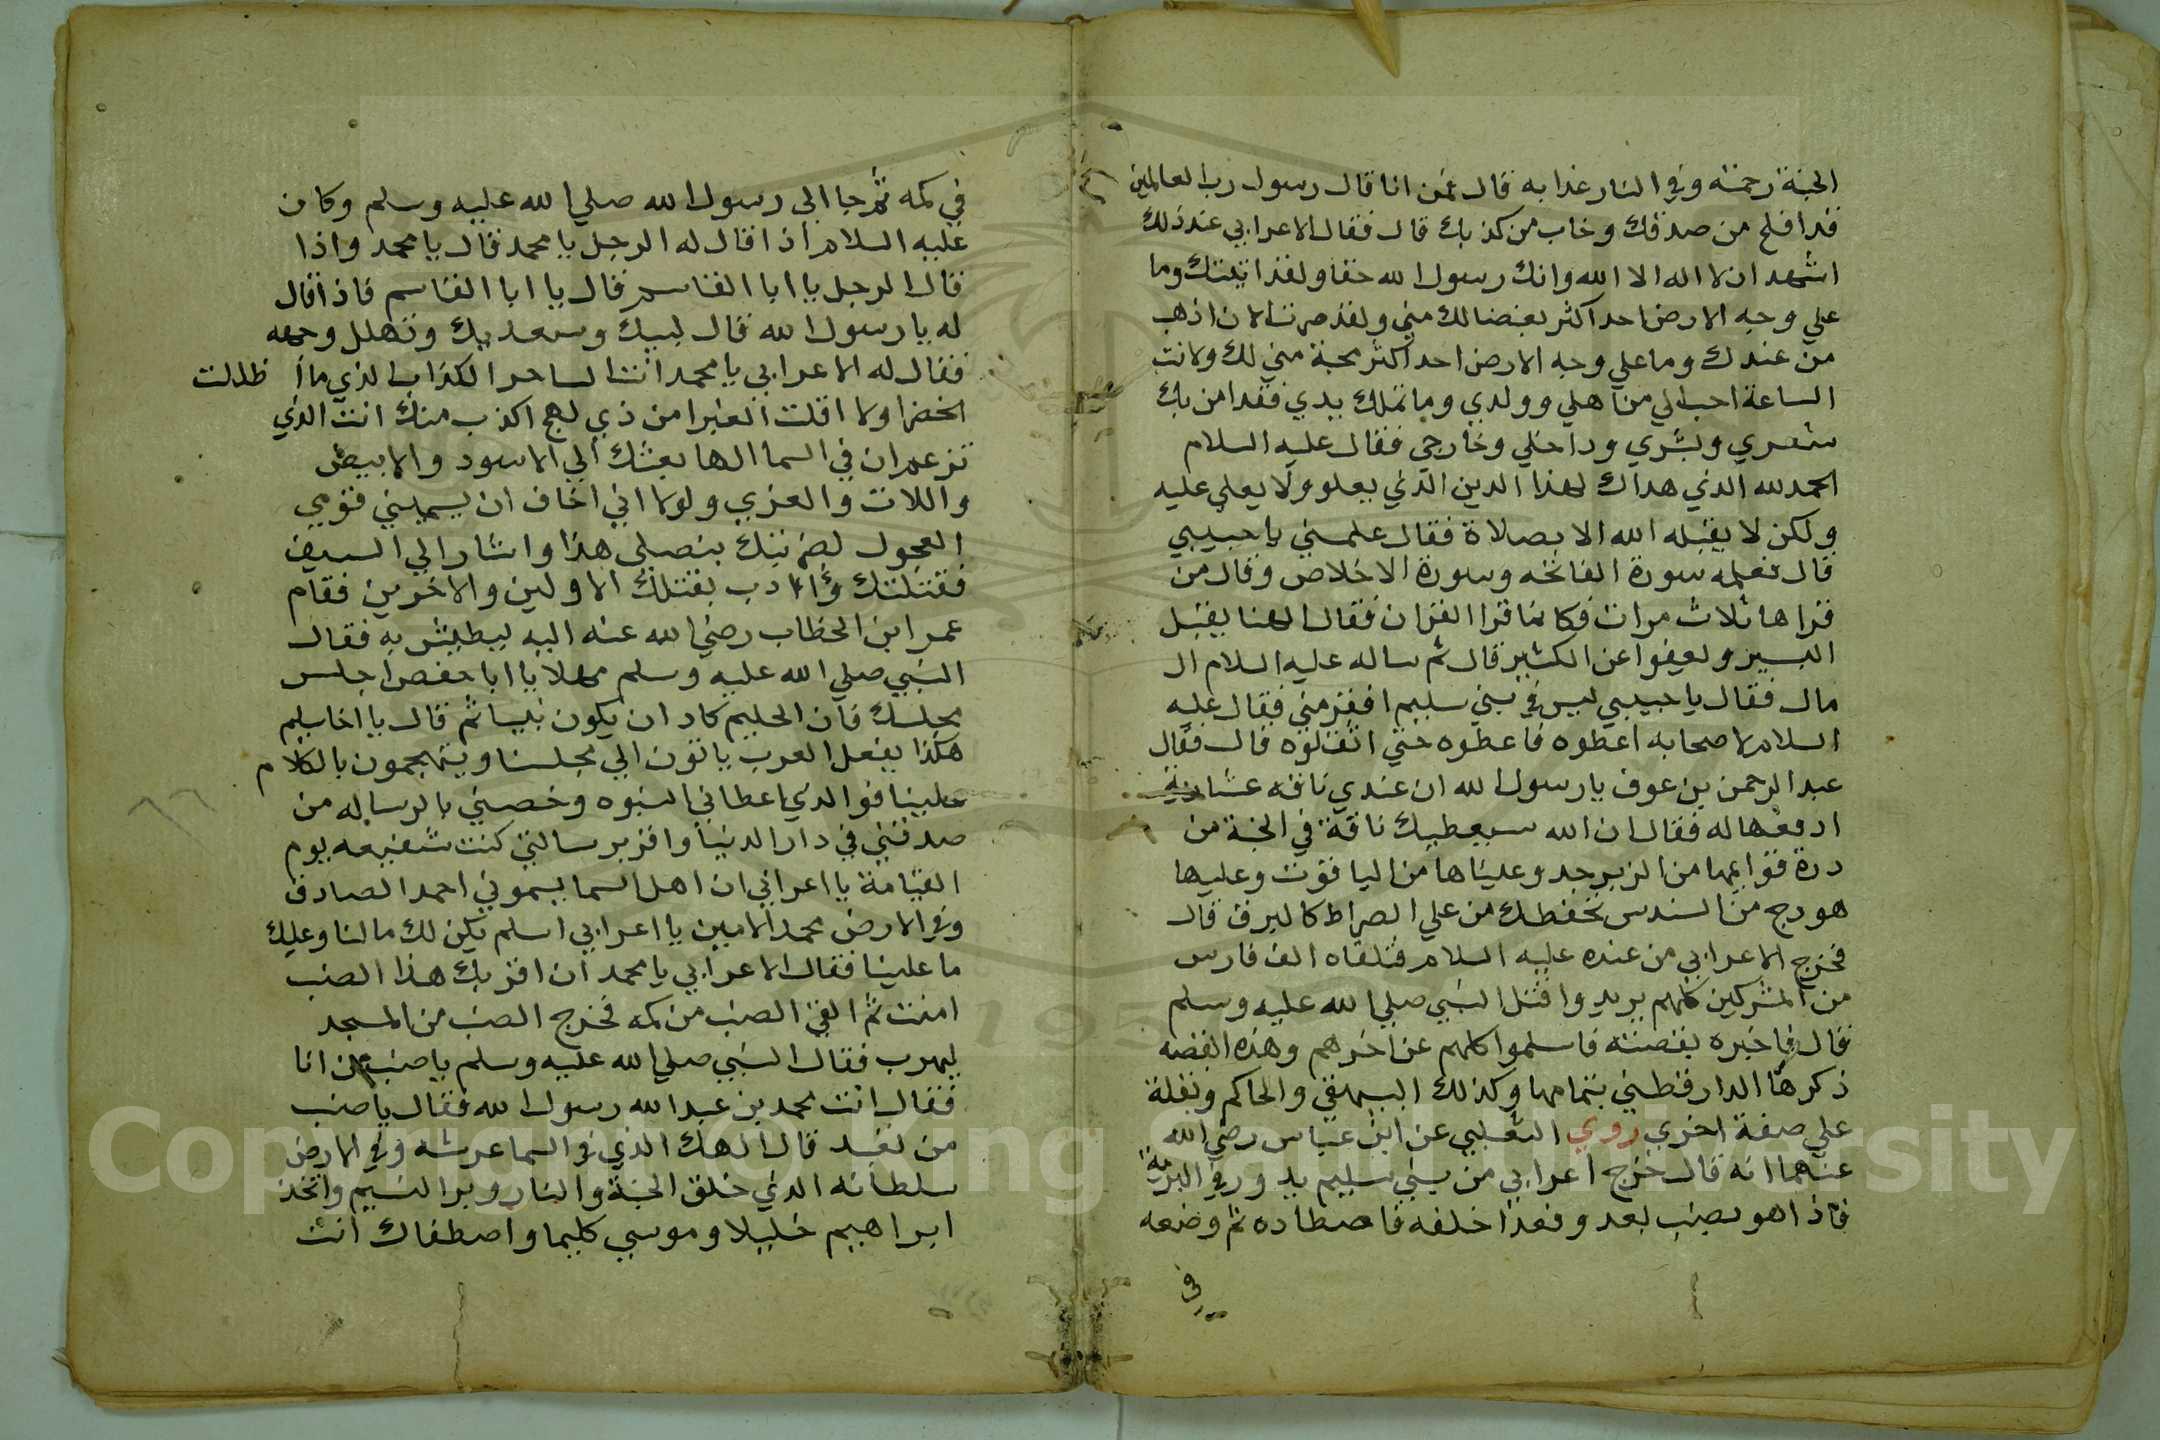 الجنة رحمته وفي النار عذابه قال فمن انا قال رسول رب العالمين
قد افلح من صدقك وخاب من كذبك قال فقال الاعرابي عند ذلك
اشهد ان لا اله الا الله وانك رسول الله حقا ولقد اتيتك وما
علي وجه الارض احد اكثر بغضا لك مني ولقد صرت الان اذهب
من عندك وما علي وجه الارض احد اكثر محبة مني لك ولانت
الساعة احب الي من اهلي وولدي وما تملك يدي فقد امن بك
شعري وبشري وداخلي وخارجي فقال عليه السلام
الحمد لله الذي هداك لهذا الدين الذي يعلو ولا يعلي عليه
ولكن لا يقبله الله الا بصلاة فقال علمني يا حبيبي
قال فعلمه سورة الفاتحه وسورة الاخلاص وقال من
قراها ثلاث مرات فكانما قرا القران فقال الهنا يقبل
اليسير ويعفوا عن الكثير قال ثم ساله عليه السلام ال
مال فقال يا حبيبي ليس في بني سليم افقر مني فقال عليه
السلام لاصحابه اعطوه فاعطوه حتي اثقلوه قال فقال
عبد الرحمن بن عوف يا رسول الله ان عندي ناقه عشارية
ادفعها له فقال ان الله سيعطيك ناقة في الجنة من
درة قوايمها من الزبرجد وعيناها من الياقوت وعليها
هودج من السندس تخطفك من علي الصراط كالبرق قال
فخرج الاعرابي من عنده عليه السلام فتلقاه الف فارس
من المشركين كلهم يريدوا قتل النبي صلي الله عليه وسلم
قال فاخبره بقصته فاسلموا كلهم عن اخرهم وهذه القصه
ذكرها الدارقطني بتمامها وكذلك البيهقي والحاكم ونقله
علي صفة اخري روي الثعلبي عن ابن عباس رضي الله
عنهما انه قال خرج اعرابي من بني سليم يدور في البرية
فاذا هو بضب يعدو فعدا خلفه فاصطاده ثم وضعه
في
في كمه ثم جا الى رسول الله صلي الله عليه وسلم وكان
عليه السلام اذا قال له الرجل يا محمد قال يا محمد واذا
قال الرجل يا ابا القاسم قال يا ابا القاسم فاذا قال
له يا رسول الله قال لبيك وسعديك وتهلل وجهه
فقال له الاعرابي يا محمد انت الساحر الكذاب الذي ما اظللت
الخضرا ولا اقلت الغبرا من ذي لهج اكذب منك انت الذي
تزعم ان في السما الها بعثك الي الاسود والابيض
واللات والعزي ولولا اني اخاف ان يسميني قومي
العجول لضربتك بنصلي هذا واشار الي السيف
فقتلتك ولادب بقتلك الاولين والاخرين فقام
عمر ابن الخطاب رضي الله عنه اليه ليبطيش به فقال
النبي صلي الله عليه وسلم مهلا يا ابا حفص اجلس
مجلسك فان الحليم كاد ان يكون نبيا ثم قال يا اخا سليم
هكذا يفعل العرب ياتون الي مجلسنا ويتهجمون بالكلام
علينا فو الذي اعطاني النبوه وخصني بالرساله من
صدقني في دار الدنيا واقر برسالتي كنت شفيعه يوم
القيامة يا اعرابي ان اهل السما يسموني احمد الصادق
وفي الارض محمد الامين يا اعرابي اسلم يكن لك ما لنا وعليك
ما علينا فقال الاعرابي يا محمد ان اقر بك هذا الضب
امنت ثم القي الضب من كمه فخرج الضب من المسجد
ليهرب فقال النبي صلي الله عليه وسلم يا ضب من انا
فقال انت محمد بن عبد الله رسول الله فقال يا ضب
من تعبد قال الهك الذي في السما عرشه وفي الارض
سلطانه الذي خلق الجنة والنار وبرا النسيم واتخذ
ابراهيم خليلا وموسي كليما واصطفاك انت
Copyright © King Saud University